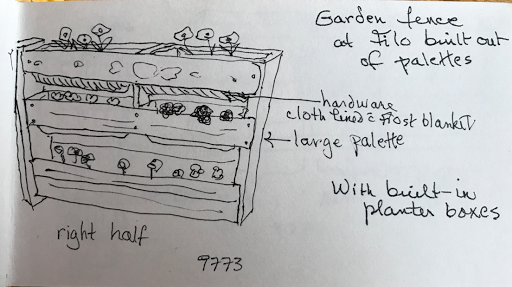 Garden fence
at Filo built out
of palettes
hardware
cloth lined c̄ frost blanket
large palette
With built-in
planter boxes
right half
9773